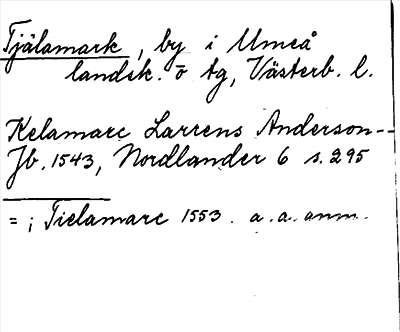 Tjälamark, by i Umeå
landsk. o tg, Västerb. l.
Kelamarc Larrens Anderson--
Jb. 1543, Nordlander 6 s. 295
= ; Tielamarc 1553. a. a. anm.